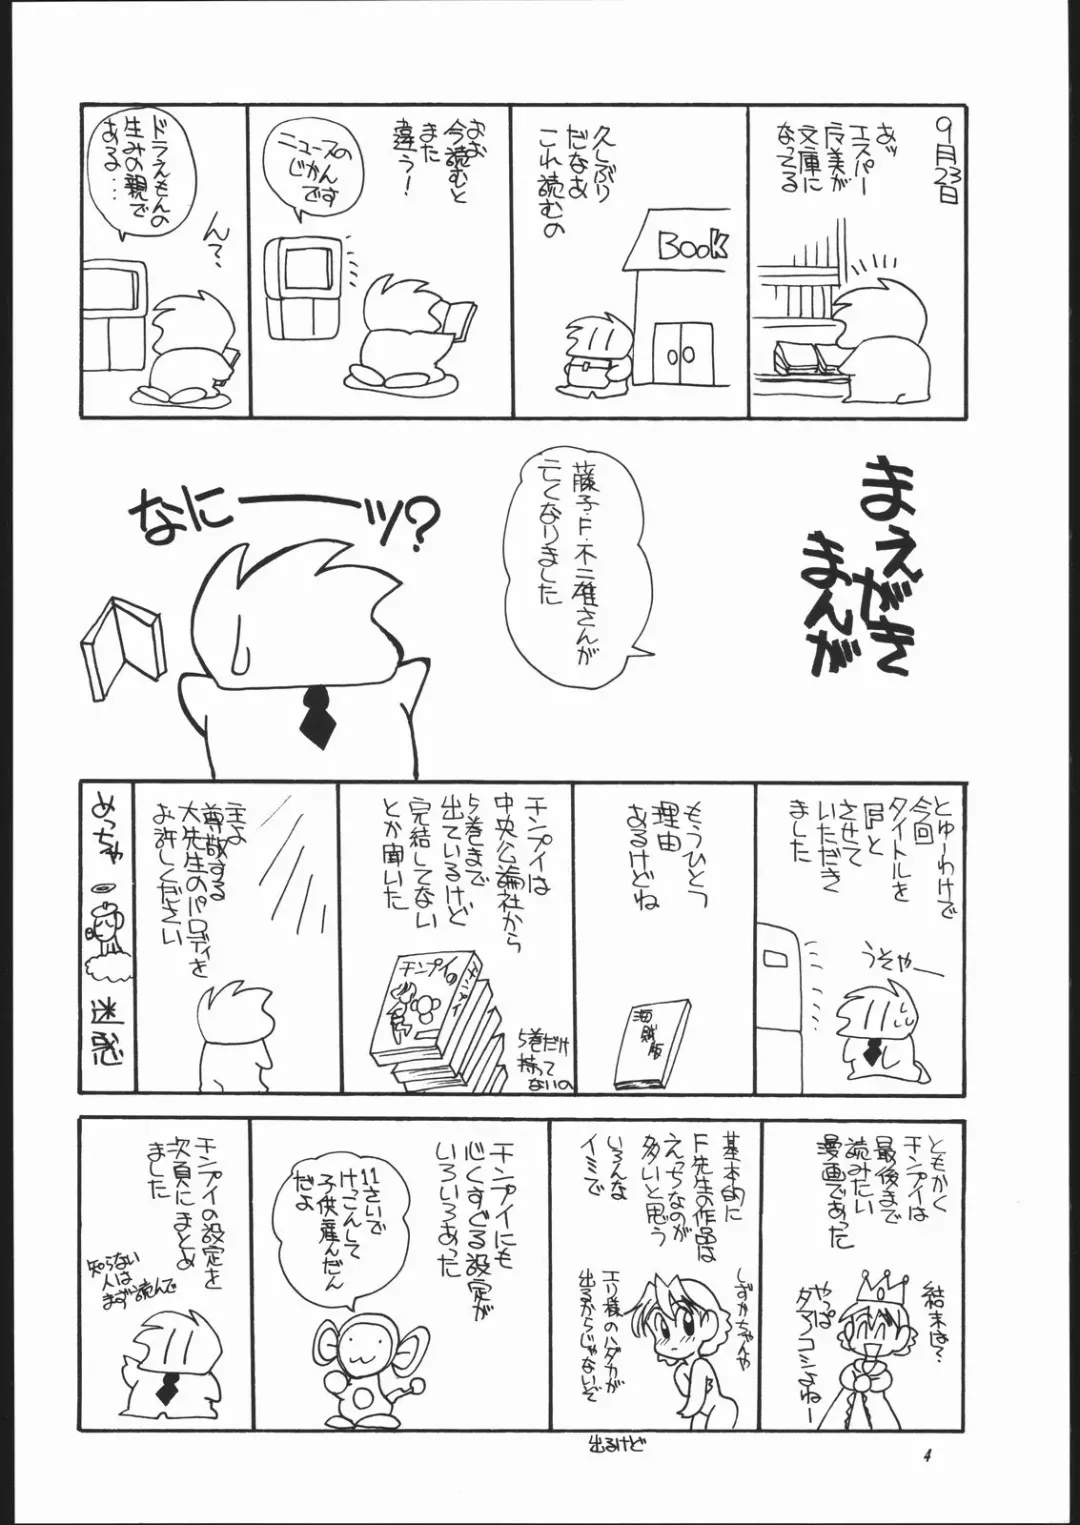 9月23日
あッ
エスパー
魔美が
文庫に
なってる
久しぶり
だなあ
これ読むの
BOOK
おお
今読むと
また
違う!
ニュースの
じかんです
ん?
ドラえもんの
生みの親で
ある…
まえがき
まんが
藤子・F・不二雄さんが
亡くなりました
なにーーッ?
とゆーわけで
今回
タイトルを
Fと
させて
いただき
ました
うそやー
もうひとつ
理由
あるけどね
海賊版
チンプイは
中央公論社から
5巻まで
出ているけど
完結してない
とか聞いた
チンプイの
チンプイ
5巻だけ
持って
ないの
主よ
尊敬する
大先生のパロディを
お許しください
めっちゃ
迷惑
ともかく
チンプイは
最後まで
読みたい
漫画であった
結末は?
やっぱ
タマノコシよねー
基本的に
F先生の作品は
えっちなのが
多いと思う
いろんな
イミで
しずかちゃんや
エリ様のハダカが
出るからじゃないぞ
出るけど
チンプイにも
心くすぐる設定が
いろいろあった
11さいで
けっこんして
子供産んだん
だよ
チンプイの設定を
次頁にまとめ
ました
知らない
人は
まず読んで
4